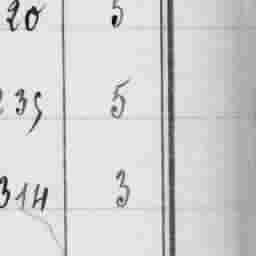 20 5
235 5
314 3